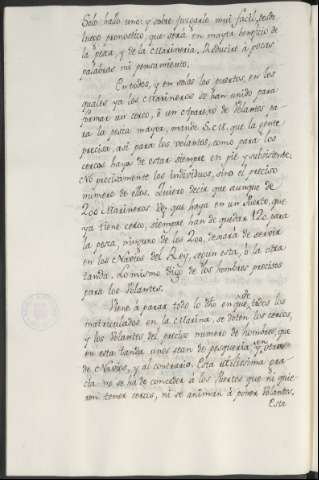 Solo hallo uno: y sobre juzgarlo mui facil, desde
luego pronostico, que obrará en mayor beneficio de
la pesca, y de la Marineria. Reduciré á pocas
palabras mi pensamiento.
En todos, y en solos los puertos, en los
quales ya los Marineros se han unido para
formar un cerco, ó un aparejo de Volantes pa-
ra la pesca mayor, mande S.E.II. que la gente
precisa, asi para los volantes, como para los
cercos haya de estar siempre en pie y subsistente:
No precisamente los individuos, sino el preciso
numero de ellos. Quiero decir que aunque de
200 Marineros que haya en un Puerto, que
ya tiene cerco, siempre han de quedar 120 para
la pesca, ninguno de los 200, dexará de servir
en los Navios del Rey, según esta, ó la otra
tanda. Lo mismo digo de los hombres precisos
para los Volantes.
Viene á parar todo lo dho en que de todos los
matriculados en la Marina, se doten los cercos,
y los Volantes del preciso numero de hombres, que
en esta tanda unos sean de pesqueria, y en otra
de Navios, y al contrario. Esta utilissima gracia
no se ha de conceder á los Puertos que ni quie-
ren tener cercos, ni se animan á poner Volantes.
Esta